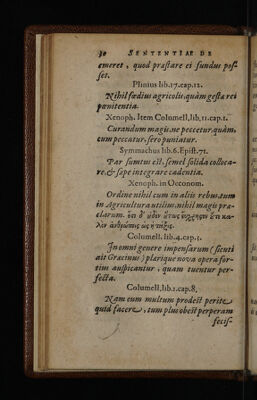 30 SENTENTIAE DE
emeret, quod præstare ei fundus pos-
set.
Plinius lib.17.cap.12.
Nihil fœdius agricolis, quàm gestæ rei
pœnitentia.
Xenoph. Item Columell. lib. 11. cap. 1.
Curandum magis, ne peccetur, quàm,
cum peccatur, sero puniatur.
Symmachus lib. 6. Epist. 71.
Par sumtus est, semel solida colloca-
re, & sæpe integrare cadentia.
Xenoph. in Oeconom.
Ordine nihil cum in aliis rebus, tum
in Agricultura utilius, nihil magis præ-
clarum. ἔστι δ' οὐδὲν οὕτως εὔχρηστον οὔτε κα-
λὸν ἀνθρώποις ὡς ἡ τάξις.
Columell. lib. 4. cap. 1.
In omni genere impensarum (sicuti
ait Gracinus) plerique nova opera for-
tius auspicantur, quam tuentur per-
fecta.
Columell. lib. 1. cap. 8.
Nam eum multum prodest perite
quid facere, tum plus obest perperam
fecis-